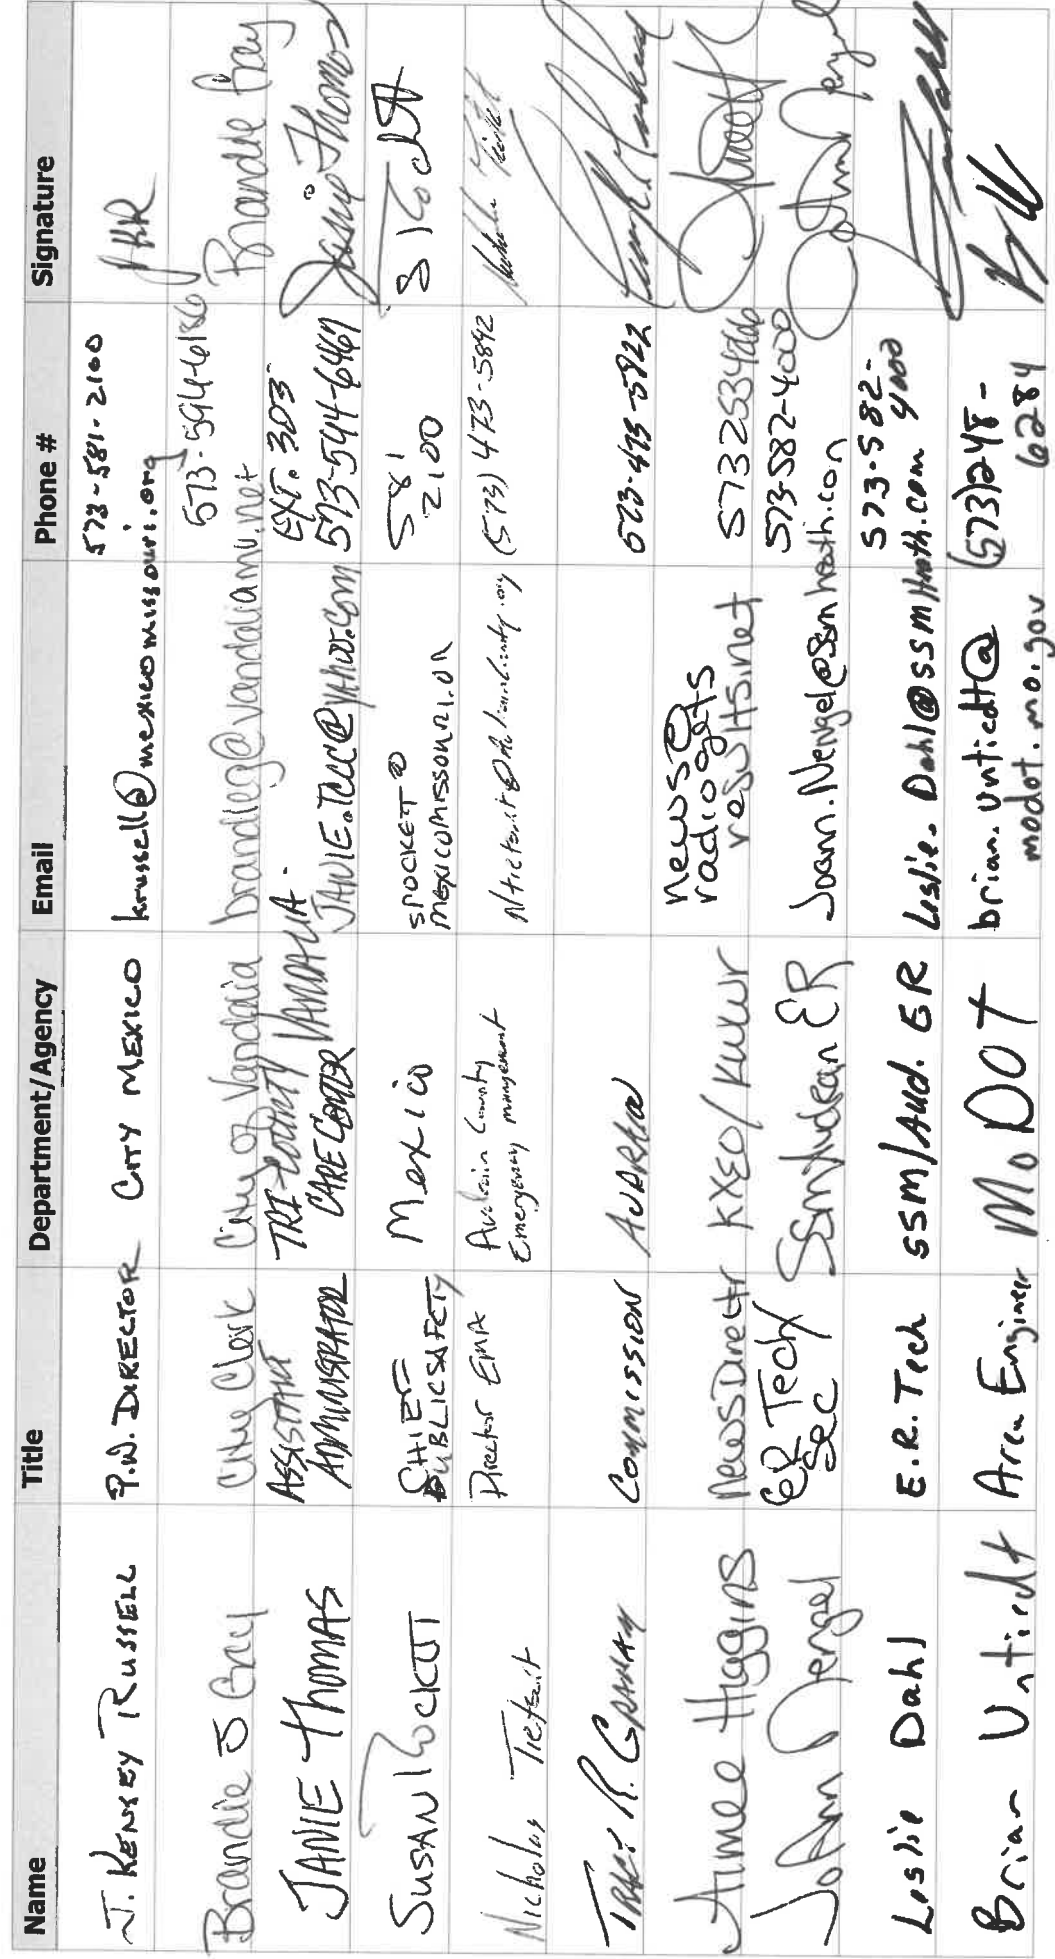 Name Title Department/Agency Email Phone # Signature
J. KENSEY RUSSELL P.W. DIRECTOR CITY MEXICO krussell@mexicomissouri.org 573-581-2100 JKR
Brandie J Gray City Clerk City of Vandalia brandieg@vandaliamo.net 573-594-6186 Brandie Gray
JANIE THOMAS ASSISTANT ADMINISTRATOR TRI-COUNTY VANDALIA CARE CENTER JANIE.TCCC@YAHOO.COM 573-594-6467 EXT. 303 Janie Thomas
SUSAN ROCKETT CHIEF PUBLIC SAFETY Mexico SROCKETT@ MEXICOMISSOURI.OR 581 2100 S Rockett
Nicholas Director EMA Audrain County Emergency management (573) 473-5842
TRACY R. GRAHAM COMMISSION AUDRAIN 573-473-5822
Aime Higgins News Directr KXEO/KWWR news@ radiogets results.net 5732534
JoAnn Nengel ER Tech/ Sec Ssm/Audrain ER Joann.Nengel@ssmhealth.con 573-582-4000
Leslie Dahl E.R. Tech SSM/Aud. ER Leslie.Dahl@ssmHealth.com 573-582- 4000
Brian Untiedt Area Engineer MoDOT brian.untiedt@ modot.mo.gov (573)248- 6284